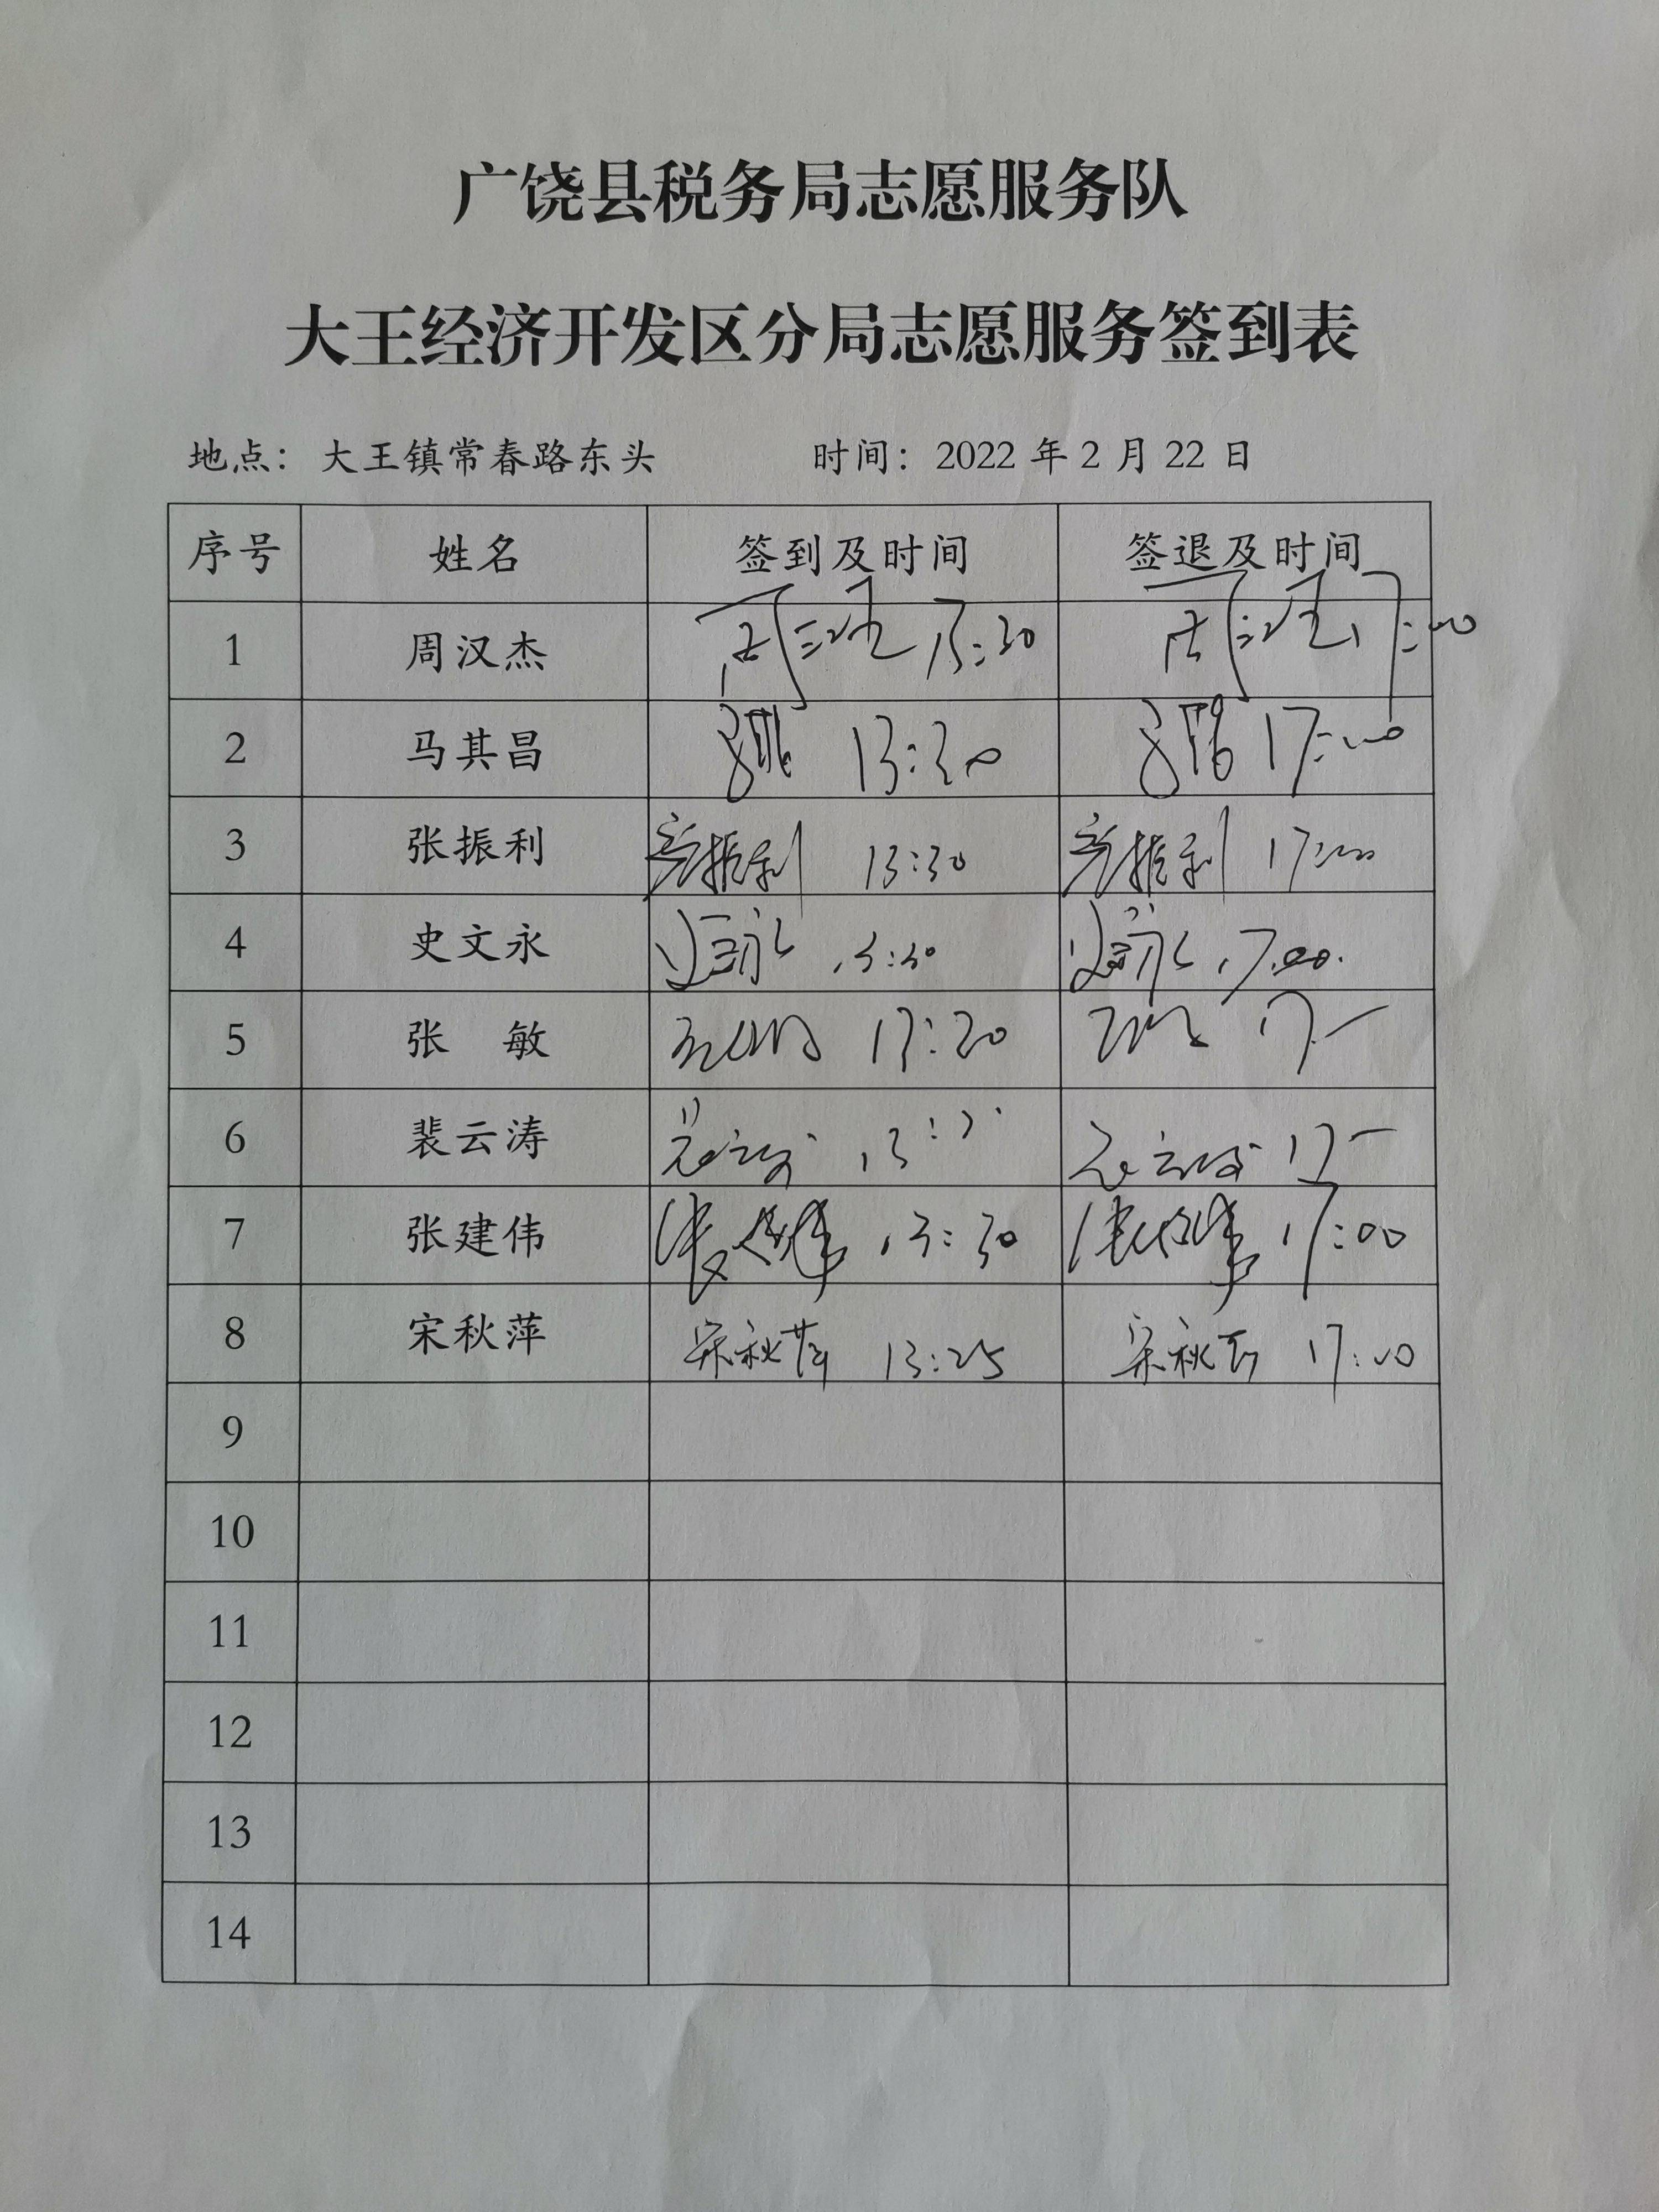 广饶县税务局志愿服务队
大王经济开发区分局志愿服务签到表
地点：大王镇常春路东头 时间：2022年2月22日
序号 姓名 签到及时间 签退及时间
1 周汉杰 周汉杰 13:30 周汉杰 17:00
2 马其昌 马其昌 13:30 马其昌 17:00
3 张振利 张振利 13:30 张振利 17:00
4 史文永 史文永 13:30 史文永 17:00
5 张 敏 张敏 13:30 张敏 17:
6 裴云涛 裴云涛 13:3 裴云涛 17
7 张建伟 张建伟 13:30 张建伟 17:00
8 宋秋萍 宋秋萍 13:25 宋秋萍 17:00
9
10
11
12
13
14